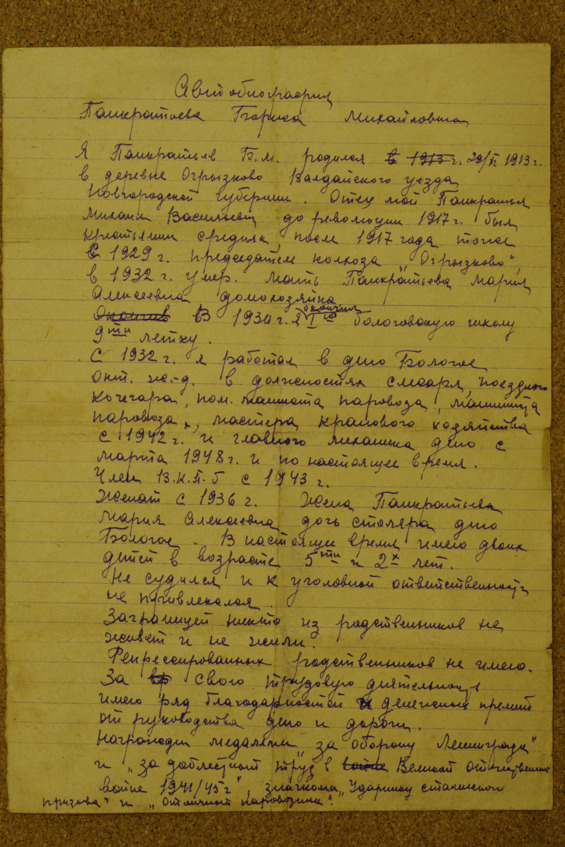 Автобиография
Панкратьева Бориса Михайловича
Я Панкратьев Б.М. родился в 1913 г. 29/II 1913 г.
в деревне Огрызково Валдайского уезда
Новгородской губернии. Отец мой Панкратьев
Михаил Васильевич до революции 1917 г. был
крестьянин средняк после 1917 года тоже
в 1929 г. председатель колхоза „Огрызково",
в 1932 г. умер. Мать Панкратьева Мария
Алексеевна домохозяйка
Окончив В 1930 г. я окончил I ю бологовскую школу
9ти летку.
С 1932 г. я работал в депо Бологое
Окт. ж.-д. в должностях слесаря, поездного
кочегара, пом. машиниста паровоза, машиниста
паровоза, мастера кранового хозяйства
с 1942 г. и главного механика депо с
марта 1948 г. и по настоящее время.
Член В.К.П.б с 1943 г.
Женат с 1936 г. Жена Панкратьева
Мария Алексеевна дочь столяра депо
Бологое. В настоящее время имею двоих
детей в возрасте 5ти и 2х лет.
Не судился и к уголовной ответственности
не привлекался.
Заграницей никто из родственников не
живет и не жили.
Репрессированных родственников не имею.
За свого трудовую деятельность
имею ряд благодарностей и денежных премий
от руководства депо и дороги.
Награжден медалями „за оборону Ленинграда"
и „за доблестный труд в войне Великой отечественной
войне 1941/45 г", значком „Ударнику сталинского
призыва" и „Отличный паровозник".